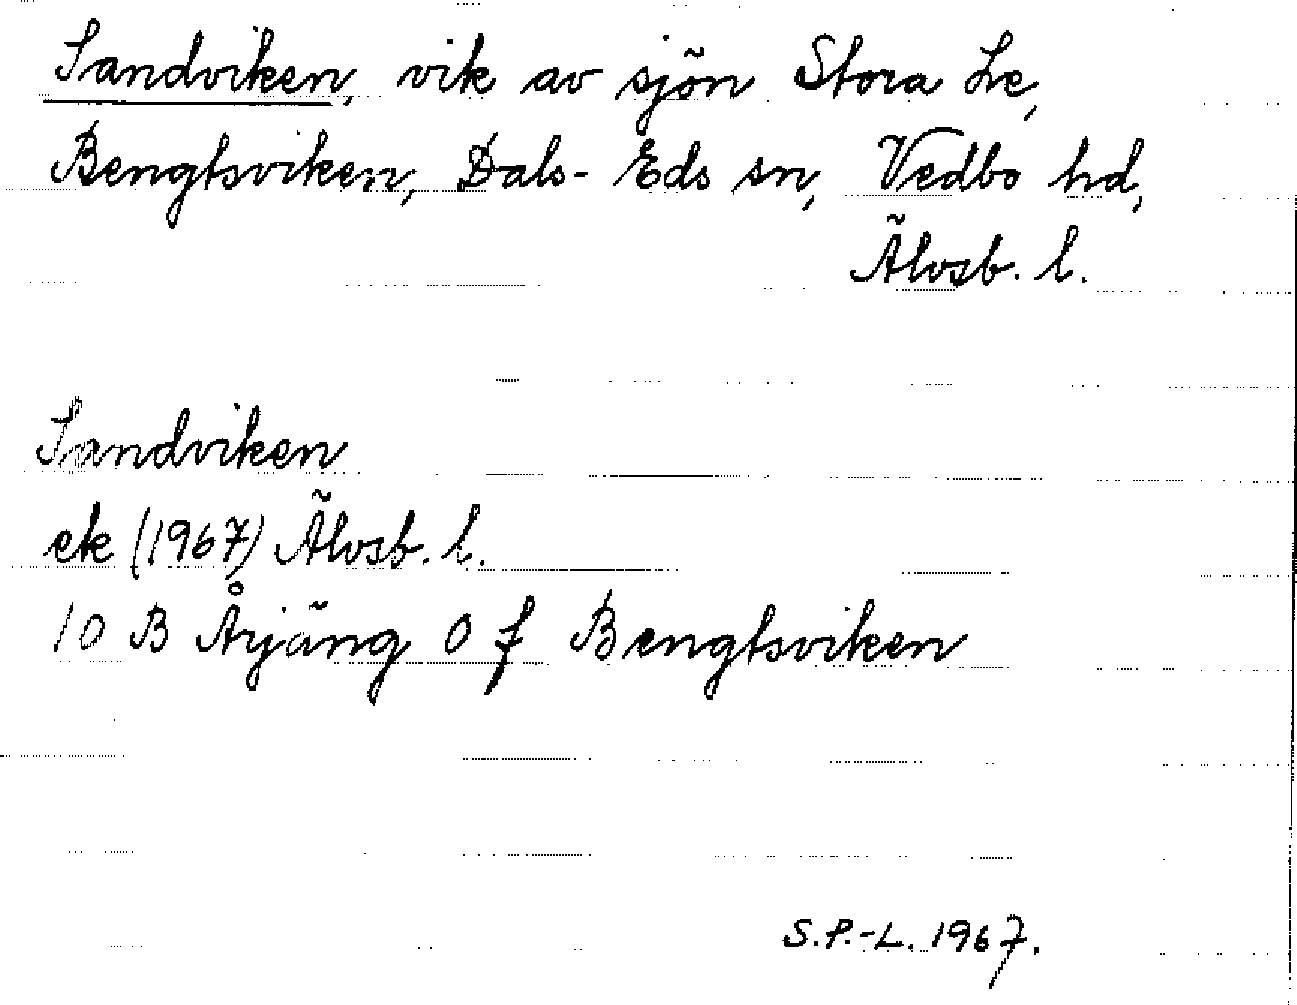 Sandviken, vik av sjön Stora Le,
Bengtsviken, Dals-Eds sn, Vedbo hd,
Älvsb. l.
Sandviken
ek (1967) Älvsb. l.
10 B Årjäng 0 f Bengtsviken
S.P.-L. 1967.